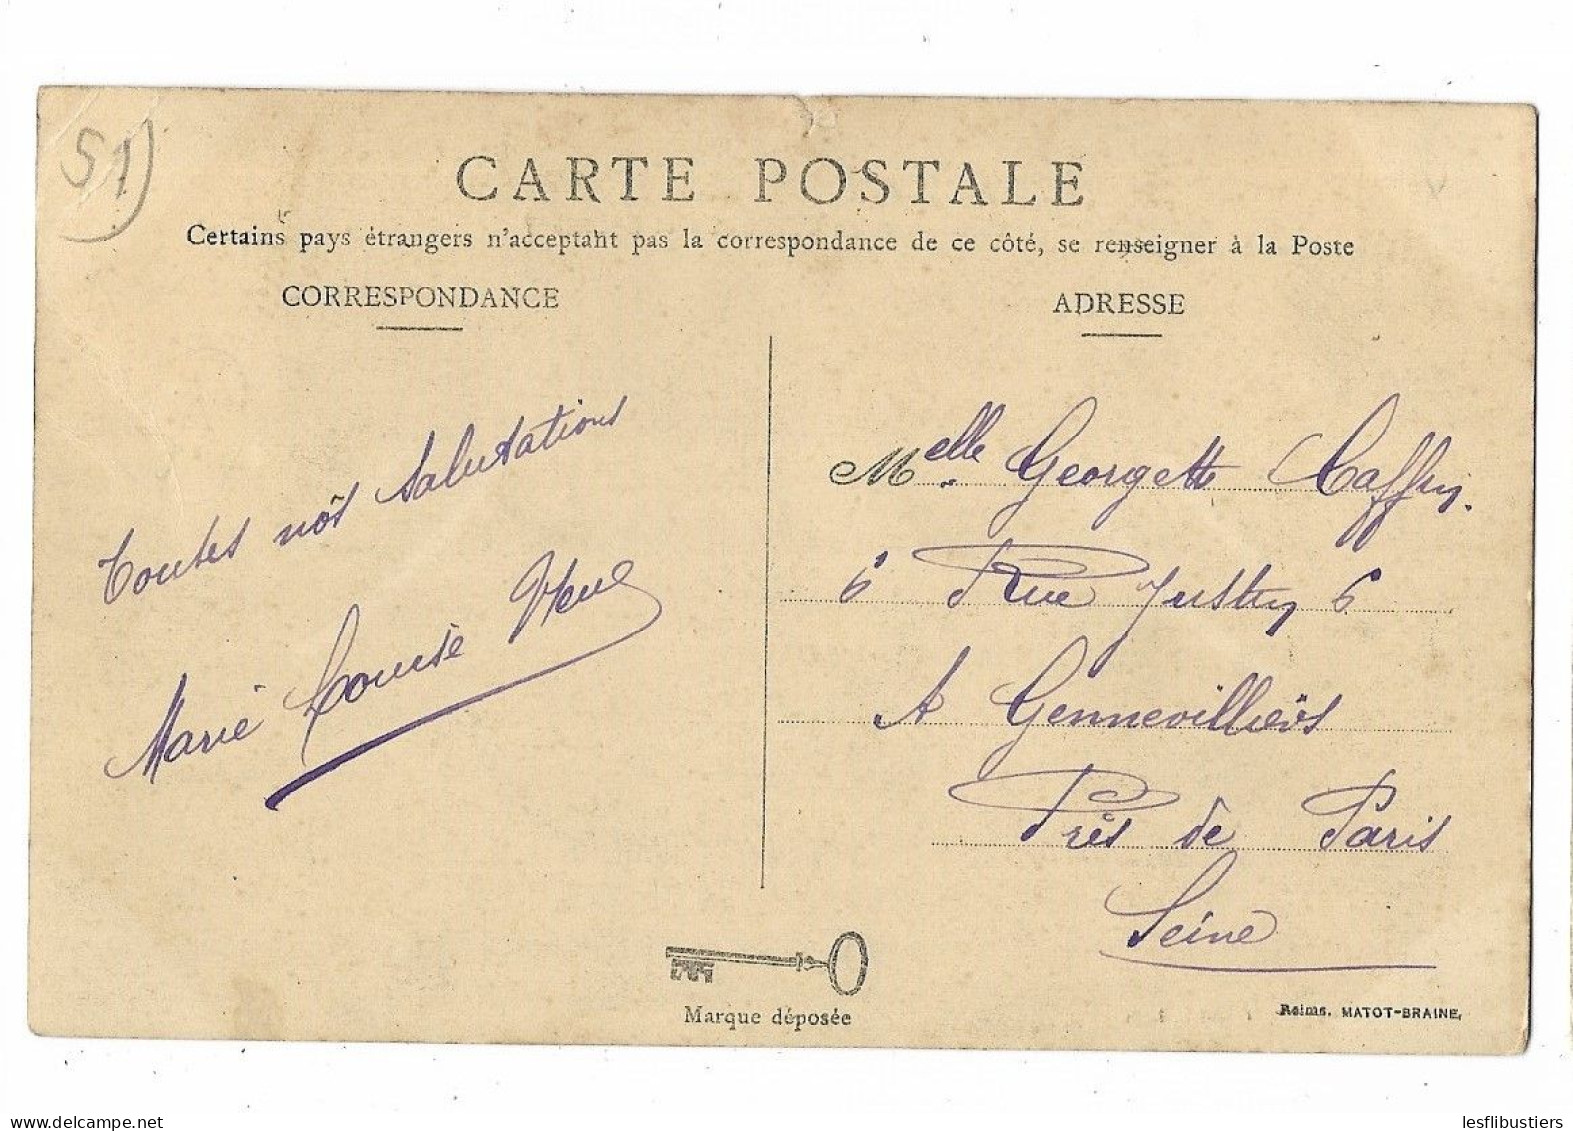 51)
CARTE POSTALE
Certains pays étrangers n'acceptant pas la correspondance de ce côté, se renseigner à la Poste
CORRESPONDANCE
ADRESSE
Toutes nôs Salutations
Marie Louise
Melle Georgette
6 Rue 6
A Gennevilliers
Près de Paris
Seine
Marque déposée
Reims. MATOT-BRAINE,
lesflibustiers